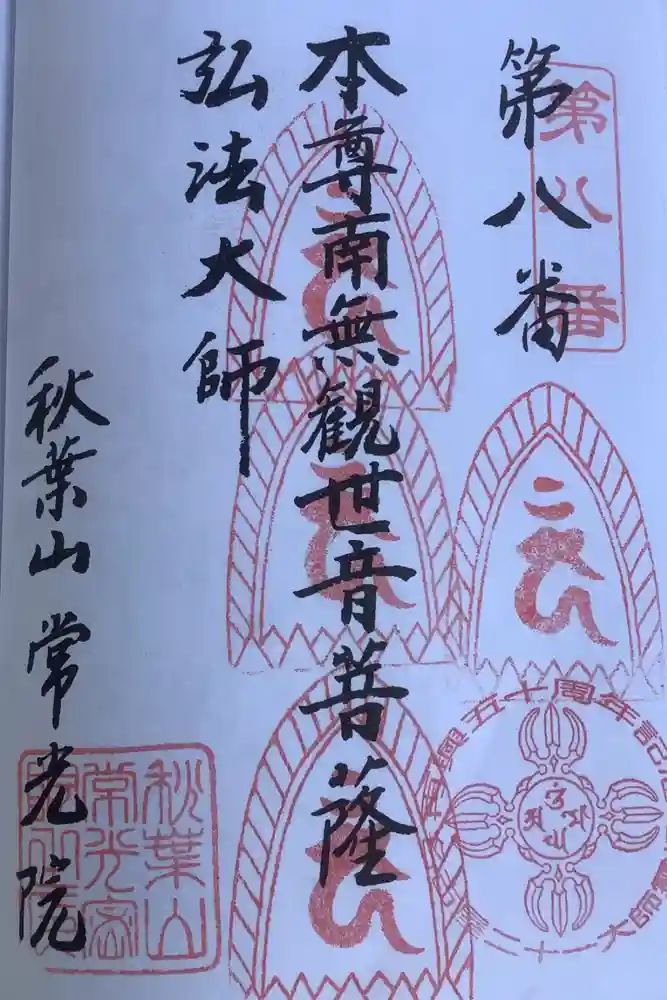 第八番
本尊南無観世音菩薩
弘法大師
秋葉山 常光院
第八番
再興五十周年記
二十一大師
秋葉山
常光